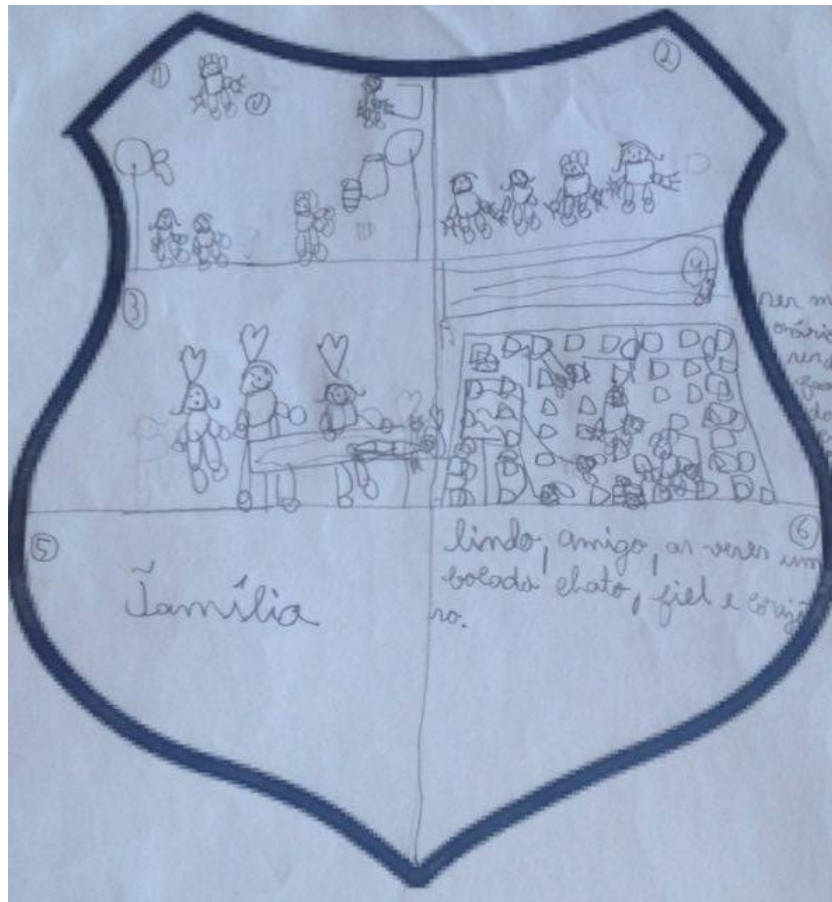 1
2
3
4
5
Família
6
lindo, amigo, as vezes um
bocado chato, fiel e coraj
so.